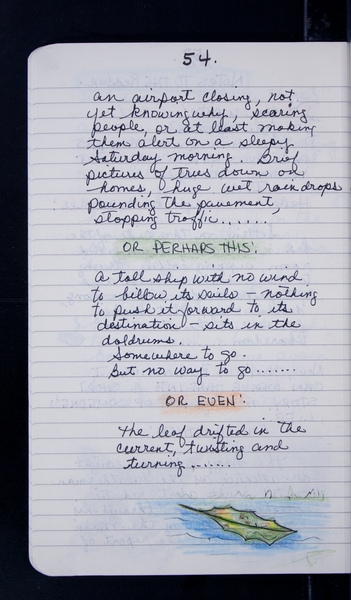 54.
an airport closing, not
yet knowing why, scaring
people, or at least making
them alert on a sleepy
Saturday morning. Brief
pictures of trees down on
homes, huge wet raindrops
pounding the pavement,
stopping traffic.......
OR PERHAPS THIS:
A tall ship with no wind
to billow its sails – nothing
to push it forward to its
destination – sits in the
doldrums.
Somewhere to go.
But no way to go.......
OR EVEN:
The leaf drifted in the
current, twisting and
turning.......